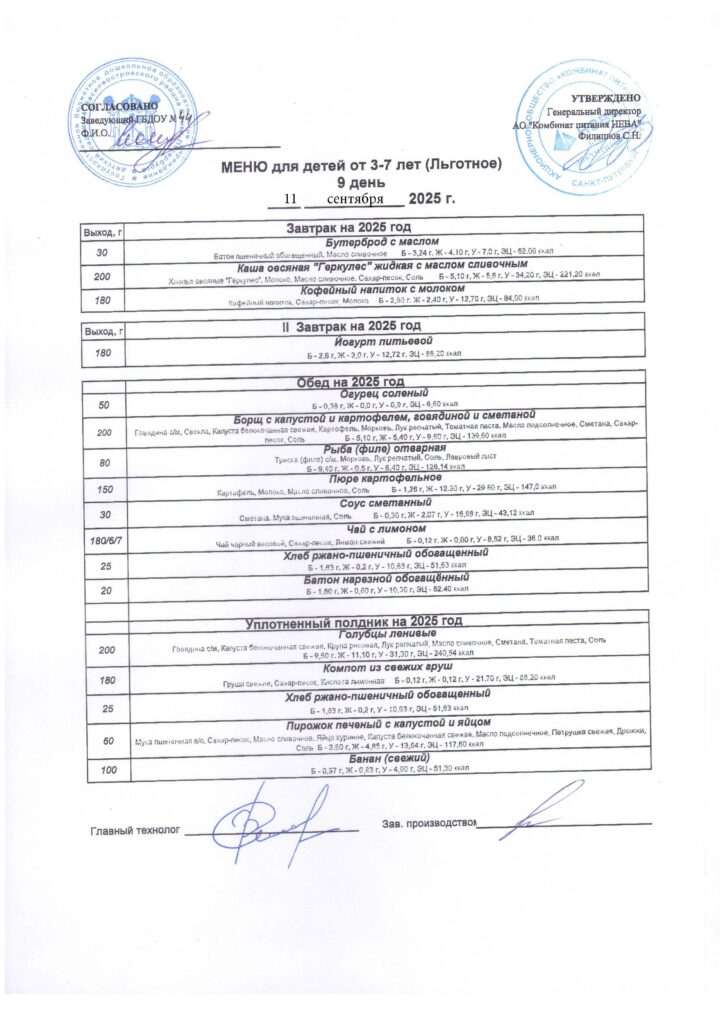 СОГЛАСОВАНО
Заведующий ГБДОУ № 44
Ф.И.О.
УТВЕРЖДЕНО
Генеральный директор
АО "Комбинат питания НЕВА"
Филиппов С.Н.
САНКТ-ПЕТЕРБУРГ
МЕНЮ для детей от 3-7 лет (Льготное)
9 день
11 сентября 2025 г.
Выход, г Завтрак на 2025 год
Бутерброд с маслом
30 Батон пшеничный обогащенный, Масло сливочное Б - 3,24 г, Ж - 4,10 г, У - 7,0 г, ЭЦ - 62,00 ккал
Каша овсяная "Геркулес" жидкая с маслом сливочным
200 Хлопья овсяные "Геркулес", Молоко, Масло сливочное, Сахар-песок, Соль Б - 5,10 г, Ж - 5,6 г, У - 34,20 г, ЭЦ - 221,20 ккал
Кофейный напиток с молоком
180 Кофейный напиток, Сахар-песок, Молоко Б - 2,50 г, Ж - 2,40 г, У - 12,70 г, ЭЦ - 84,00 ккал
Выход, г II Завтрак на 2025 год
Йогурт питьевой
180 Б - 2,6 г, Ж - 3,0 г, У - 12,72 г, ЭЦ - 88,20 ккал
Обед на 2025 год
Огурец соленый
50 Б - 0,38 г, Ж - 0,0 г, У - 0,9 г, ЭЦ - 6,50 ккал
Борщ с капустой и картофелем, говядиной и сметаной
200 Говядина с/м, Свекла, Капуста белокочанная свежая, Картофель, Морковь, Лук репчатый, Томатная паста, Масло подсолнечное, Сметана, Сахар-
песок, Соль Б - 5,10 г, Ж - 5,40 г, У - 9,60 г, ЭЦ - 139,60 ккал
Рыба (филе) отварная
80 Треска (филе) с/м, Морковь, Лук репчатый, Соль, Лавровый лист
Б - 9,40 г, Ж - 0,5 г, У - 6,40 г, ЭЦ - 126,14 ккал
Пюре картофельное
150 Картофель, Молоко, Масло сливочное, Соль Б - 1,26 г, Ж - 12,30 г, У - 29,60 г, ЭЦ - 147,0 ккал
Соус сметанный
30 Сметана, Мука пшеничная, Соль Б - 0,30 г, Ж - 2,07 г, У - 16,68 г, ЭЦ - 43,12 ккал
Чай с лимоном
180/6/7 Чай черный весовой, Сахар-песок, Лимон свежий Б - 0,12 г, Ж - 0,00 г, У - 8,52 г, ЭЦ - 36,0 ккал
Хлеб ржано-пшеничный обогащенный
25 Б - 1,63 г, Ж - 0,2 г, У - 10,63 г, ЭЦ - 51,63 ккал
Батон нарезной обогащённый
20 Б - 1,60 г, Ж - 0,60 г, У - 10,30 г, ЭЦ - 52,40 ккал
Уплотненный полдник на 2025 год
Голубцы ленивые
200 Говядина с/м, Капуста белокочанная свежая, Крупа рисовая, Лук репчатый, Масло сливочное, Сметана, Томатная паста, Соль
Б - 9,50 г, Ж - 11,10 г, У - 31,30 г, ЭЦ - 240,54 ккал
Компот из свежих груш
180 Груши свежие, Сахар-песок, Кислота лимонная Б - 0,12 г, Ж - 0,12 г, У - 21,70 г, ЭЦ - 88,20 ккал
Хлеб ржано-пшеничный обогащенный
25 Б - 1,63 г, Ж - 0,2 г, У - 10,63 г, ЭЦ - 51,63 ккал
Пирожок печеный с капустой и яйцом
60 Мука пшеничная в/с, Сахар-песок, Масло сливочное, Яйцо куриное, Капуста белокочанная свежая, Масло подсолнечное, Петрушка свежая, Дрожжи,
Соль Б - 3,60 г, Ж - 4,85 г, У - 13,64 г, ЭЦ - 117,60 ккал
Банан (свежий)
100 Б - 0,97 г, Ж - 0,83 г, У - 4,90 г, ЭЦ - 51,30 ккал
Главный технолог
Зав. производством